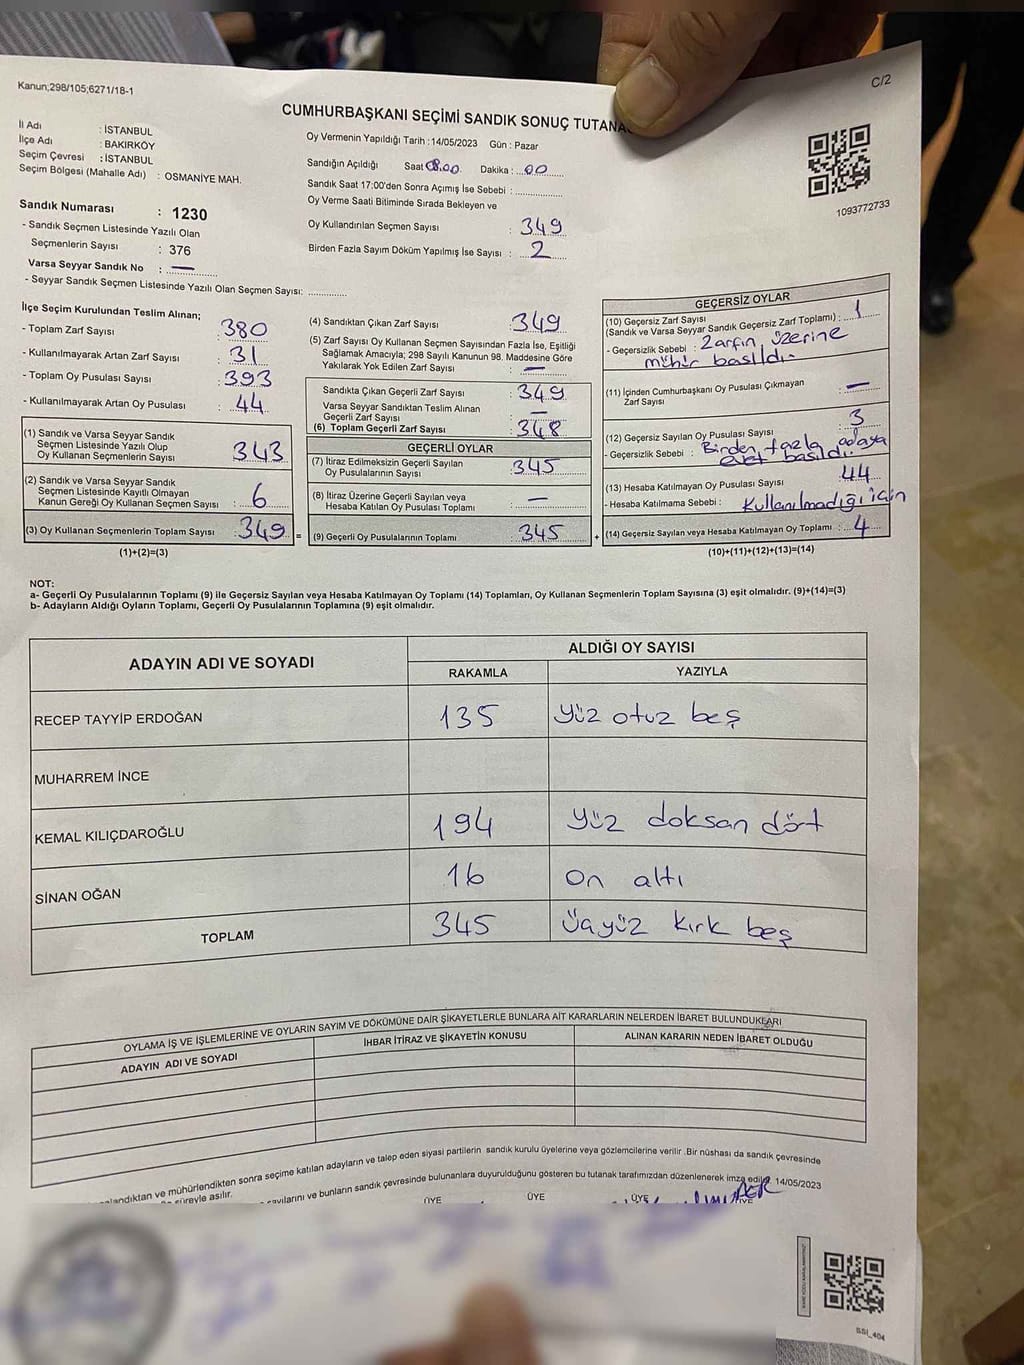 Kanun;298/105;6271/18-1
C/2
CUMHURBAŞKANI SEÇİMİ SANDIK SONUÇ TUTANA
İl Adı : İSTANBUL
İlçe Adı : BAKIRKÖY
Seçim Çevresi : İSTANBUL
Seçim Bölgesi (Mahalle Adı) : OSMANİYE MAH.
Sandık Numarası : 1230
- Sandık Seçmen Listesinde Yazılı Olan
Seçmenlerin Sayısı : 376
Varsa Seyyar Sandık No : —
- Seyyar Sandık Seçmen Listesinde Yazılı Olan Seçmen Sayısı: ..............
Oy Vermenin Yapıldığı Tarih : 14/05/2023 Gün : Pazar
Sandığın Açıldığı Saat 08.00 Dakika : 00
Sandık Saat 17:00'den Sonra Açımış İse Sebebi : ..............
Oy Verme Saati Bitiminde Sırada Bekleyen ve
Oy Kullandırılan Seçmen Sayısı : 349
Birden Fazla Sayım Döküm Yapılmış İse Sayısı : 2
1093772733
İlçe Seçim Kurulundan Teslim Alınan;
- Toplam Zarf Sayısı : 380
- Kullanılmayarak Artan Zarf Sayısı : 31
- Toplam Oy Pusulası Sayısı : 393
- Kullanılmayarak Artan Oy Pusulası : 44
(1) Sandık ve Varsa Seyyar Sandık
Seçmen Listesinde Yazılı Olup
Oy Kullanan Seçmenlerin Sayısı : 343
(2) Sandık ve Varsa Seyyar Sandık
Seçmen Listesinde Kayıtlı Olmayan
Kanun Gereği Oy Kullanan Seçmen Sayısı : 6
(3) Oy Kullanan Seçmenlerin Toplam Sayısı : 349 =
(1)+(2)=(3)
(4) Sandıktan Çıkan Zarf Sayısı : 349
(5) Zarf Sayısı Oy Kullanan Seçmen Sayısından Fazla İse, Eşitliği
Sağlamak Amacıyla; 298 Sayılı Kanunun 98. Maddesine Göre
Yakılarak Yok Edilen Zarf Sayısı : —
Sandıkta Çıkan Geçerli Zarf Sayısı : 349
Varsa Seyyar Sandıktan Teslim Alınan
Geçerli Zarf Sayısı : —
(6) Toplam Geçerli Zarf Sayısı : 348
GEÇERLİ OYLAR
(7) İtiraz Edilmeksizin Geçerli Sayılan
Oy Pusulalarının Sayısı : 345
(8) İtiraz Üzerine Geçerli Sayılan veya
Hesaba Katılan Oy Pusulası Toplamı : —
(9) Geçerli Oy Pusulalarının Toplamı : 345 +
GEÇERSİZ OYLAR
(10) Geçersiz Zarf Sayısı
(Sandık ve Varsa Seyyar Sandık Geçersiz Zarf Toplamı) : 1
- Geçersizlik Sebebi : Zarfın üzerine
mühür basıldı.
(11) İçinden Cumhurbaşkanı Oy Pusulası Çıkmayan
Zarf Sayısı —
(12) Geçersiz Sayılan Oy Pusulası Sayısı : 3
- Geçersizlik Sebebi : Birden fazla adaya
evet basıldı.
(13) Hesaba Katılmayan Oy Pusulası Sayısı : 44
- Hesaba Katılmama Sebebi : Kullanılmadığı için
(14) Geçersiz Sayılan veya Hesaba Katılmayan Oy Toplamı : 4
(10)+(11)+(12)+(13)=(14)
NOT:
a- Geçerli Oy Pusulalarının Toplamı (9) ile Geçersiz Sayılan veya Hesaba Katılmayan Oy Toplamı (14) Toplamları, Oy Kullanan Seçmenlerin Toplam Sayısına (3) eşit olmalıdır. (9)+(14)=(3)
b- Adayların Aldığı Oyların Toplamı, Geçerli Oy Pusulalarının Toplamına (9) eşit olmalıdır.
ADAYIN ADI VE SOYADI
ALDIĞI OY SAYISI
RAKAMLA YAZIYLA
RECEP TAYYİP ERDOĞAN 135 yüz otuz beş
MUHARREM İNCE
KEMAL KILIÇDAROĞLU 194 yüz doksan dört
SİNAN OĞAN 16 on altı
TOPLAM 345 üçyüz kırk beş
OYLAMA İŞ VE İŞLEMLERİNE VE OYLARIN SAYIM VE DÖKÜMÜNE DAİR ŞİKAYETLERLE BUNLARA AİT KARARLARIN NELERDEN İBARET BULUNDUKLARI
ADAYIN ADI VE SOYADI İHBAR İTİRAZ VE ŞİKAYETİN KONUSU ALINAN KARARIN NEDEN İBARET OLDUĞU
landıktan ve mühürlendikten sonra seçime katılan adayların ve talep eden siyasi partilerin sandık kurulu üyelerine veya gözlemcilerine verilir .Bir nüshası da sandık çevresinde
süreyle asılır.
sayılarını ve bunların sandık çevresinde bulunanlara duyurulduğunu gösteren bu tutanak tarafımızdan düzenlenerek imza edildi. 14/05/2023
ÜYE ÜYE ÜYE ÜYE
SSİ_404